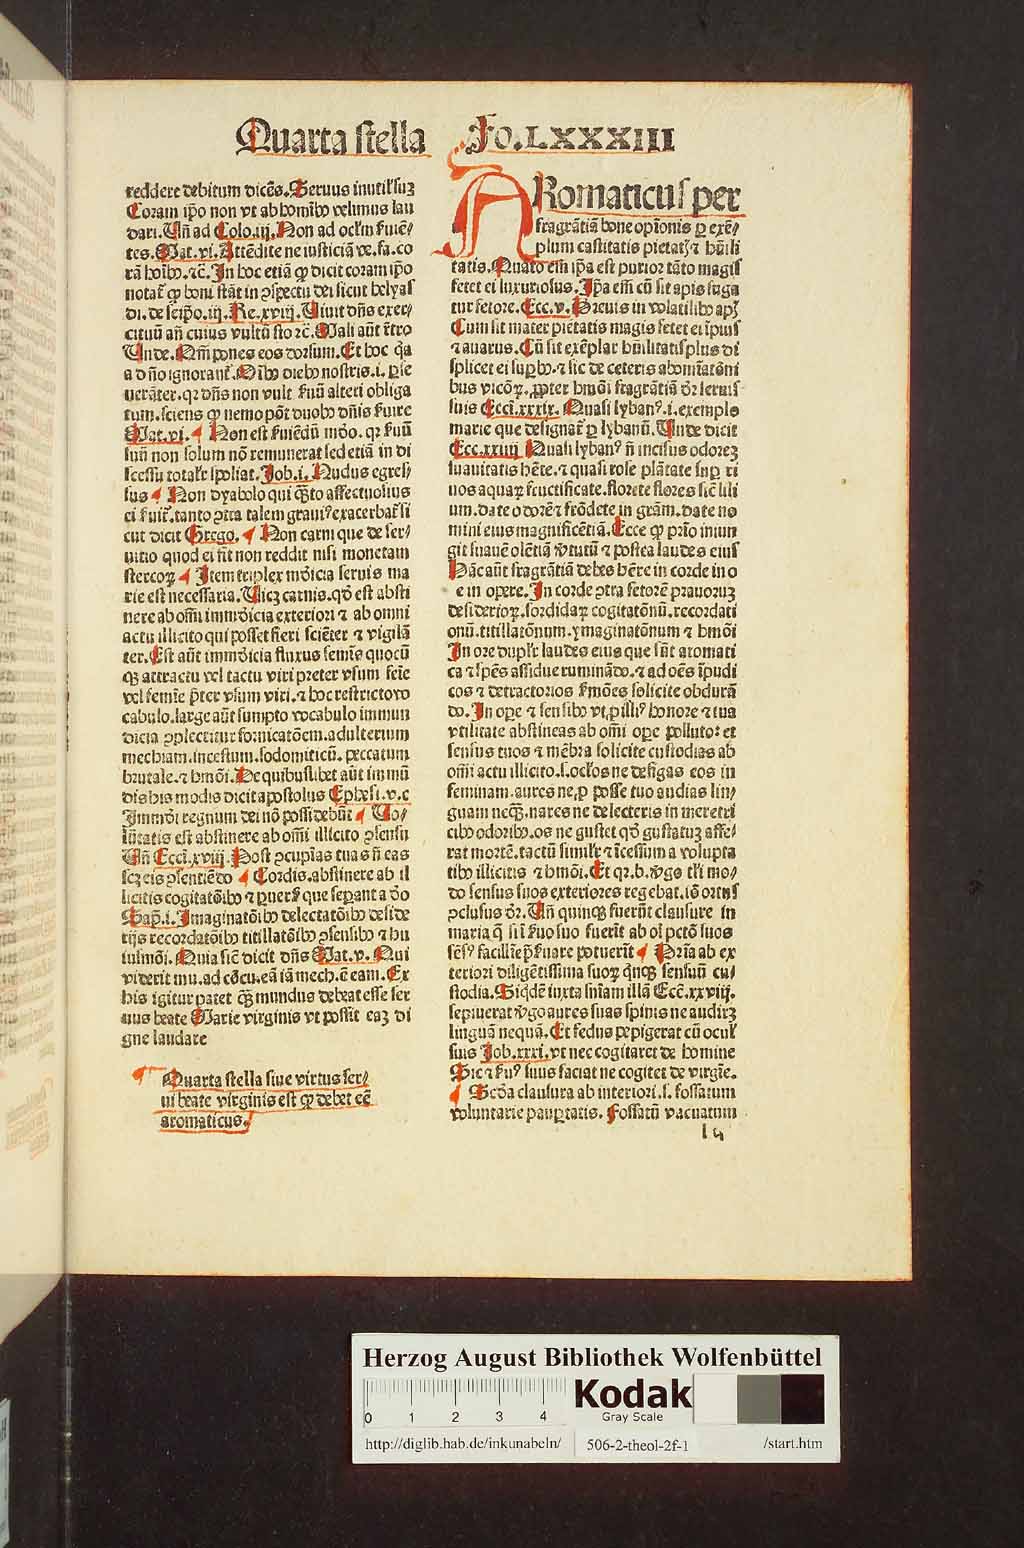 Quarta stella Fo. LXXXIII
reddere debitum dicẽs. Seruus inutil' suꝫ
Coram ip̃o non vt ab homĩbꝰ velimus lau
dari. Vñ ad Colo. iij. Non ad ocl'm ẜuiẽ⸗
tes. Mat. vi. Attẽdite ne iusticiã vr̃. fa. co
rã hoĩbꝰ. ⁊c̃. In hoc etiã ꝙ dicit coram ip̃o
notat̃ ꝙ boni stãt in ꝯspectu dei sicut helyas
di. de seip̃o. iij. Re. xviij. Viuit dñs exer⸗
cituũ añ cuius vultũ sto ⁊c̃. Mali aũt ẽtro
Vnde. Qm̃ pones eos dorsum. Et hoc q̃a
a dño ignorant̃. Oĩbꝰ diebꝰ nostris. i. ꝑse
uerãter. qꝛ dñs non vult ẜuũ alteri obliga
tum. sciens ꝙ nemo põt duobꝰ dñis ẜuire
Mat. vi. ¶ Non est ẜuiẽdũ mũdo. qꝛ ẜuũ
suũ non solum nõ remunerat sed etiã in di
scessu total'r spoliat. Job. i. Nudus egres⸗
sus ¶ Non dyabolo qui q̃nto affectuosius
ei ẜuit̃. tanto ꝯtra talem grauiꝰ exacerbat̃ si
cut dicit Grego. ¶ Non carni que de ser⸗
uitio quod ei fit non reddit nisi monetam
stercoꝝ ¶ Item triplex mũdicia seruis ma
rie est necessaria. Vicꝫ carnis. qđ est absti
nere ab om̃i immũdicia exteriori ⁊ ab omni
actu illicito qui posset fieri sciẽter ⁊ vigilã
ter. Est aũt immũdicia fluxus semĩs quocũ
qꝫ attractu vel tactu viri preter vsum feĩe
vel femĩe p̃ter vsum viri. ⁊ hoc restricto vo
cabulo. large aũt sumpto vocabulo immun
dicia ꝯplectitur fornicatõem. adulterium
mechiam. incestum. sodomiticũ. peccatum
brutale. ⁊ hmõi. De quibuslibet aũt immũ
dis his modis dicit apostolus Ephesi. v. c
Immũdi regnum dei nõ possidebũt ¶ Vo⸗
lũtatis est abstinere ab om̃i illicito ꝯsensu
Vñ Ecci. xviij. Post ꝯcupĩas tuas ñ eas
scꝫ eis ꝯsentiẽdo ¶ Cordis. abstinere ab il
licitis cogitatõibꝰ ⁊ ꝑuerẜ que seꝑant a deo
Sap. i. Imaginatõibꝰ delectatõibꝰ deside
rijs recordatõibꝰ titillatõibꝰ ꝯsensibꝰ ⁊ hu
iusmõi. Quia sic̃ dicit dñs Mat. v. Qui
viderit mu. ad cõcu. eã iã mech. ẽ eam. Ex
his igitur patet q̃lꝫ mundus debeat esse ser
uus beate Marie virginis vt possit eaꝫ di
gne laudare
¶ Quarta stella siue virtus ser⸗
ui beate virginis est ꝙ debet eẽ
aromaticus.
ARomaticus per
fragrãtiã bone opĩonis ꝑ exẽ⸗
plum castitatis pietat̃ ⁊ hũili
tatis. Quãto em̃ ip̃a est purior tãto magis
fetet ei luxuriosus. Ip̃a em̃ cũ sit apis fuga
tur fetore. Ecc. v. Breuis in volatilibꝰ apꝭ
Cum sit mater pietatis magis fetet ei ĩpius
⁊ auarus. Cũ sit exẽplar hũilitatis plus di
splicet ei suꝑbꝰ. ⁊ sic de ceteris abomĩatõni
bus vicioꝝ. ꝓpter hmõi fragrãtiã dr̃ seruis
suis Ecci. xxxix. Quasi lybanꝰ. i. exemplo
marie que designat̃ ꝑ lybanũ. Vnde dicit
Ecc. xxiiij Quasi lybanꝰ ñ incisus odoreꝫ
suauitatis hẽte. ⁊ quasi rose plãtate suꝑ ri
uos aquaꝝ fructificate. florete flores sic̃ lili
um. date odorẽ ⁊ frõdete in grãm. date no
mini eius magnificẽtiã. Ecce ꝙ prĩo iniun
git suauẽ olẽtiã ṽtutũ ⁊ postea laudes eius
Hãc aũt fragrãtiã debes hẽre in corde in o
e in opere. In corde ꝯtra fetorẽ prauoruꝫ
desiderioꝝ. sordidaꝝ cogitatõnũ. recordati
onũ. titillatõnum. ymaginatõnum ⁊ hmõi
In ore dupl'r laudes eius que sũt aromati
ca ⁊ sp̃es assidue ruminãdo. ⁊ ad oẽs ĩpudi
cos ⁊ detractorios ẜmões solicite obdurã
do. In oꝑe ⁊ sensibꝰ vt ꝓ illiꝰ honore ⁊ tua
vtilitate abstineas ab om̃i oꝑe polluto: et
sensus tuos ⁊ mẽbra solicite custodias ab
om̃i actu illicito. s. ocl'os ne defigas eos in
feminam. aures ne ꝓ posse tuo audias lin⸗
guam nequã. nares ne delecteris in meretri
cibꝰ odoribꝰ. os ne gustet qđ gustatuꝫ affe⸗
rat mortẽ. tactũ simil'r ⁊ ĩcessum a volupta
tibꝰ illicitis ⁊ hmõi. Et qꝛ. b. ṽgo tl'i mo⸗
do sensus suos exteriores regebat. iõ ortus
ꝯclusus dr̃. Vñ quinqꝫ fuerũt clausure in
maria q̃ si ĩ ẜuo suo fuerĩt ab oĩ pctõ suos
sẽsꝰ facillĩe p̃ẜuare poterũt ¶ Prĩa ab ex
teriori diligẽtissima suoꝝ q̃nqꝫ sensuũ cu⸗
stodia. Siqđẽ iuxta snĩam illã Ecc̃. xxviij.
sepiuerat ṽgo aures suas spinis ne audiꝫ
linguã nequã. Et fedus pepigerat cũ ocul'
suis Job. xxxi. vt nec cogitaret de homine
Sic ⁊ ẜuꝰ suus faciat ne cogitet de virgĩe.
¶ Scđa clausura ab interiori. s. fossatum
voluntarie pauꝑtatis. Fossatũ vacuatum
l iij
Herzog August Bibliothek Wolfenbüttel
0 1 2 3 4
Kodak
Gray Scale
http://diglib.hab.de/inkunabeln/ 506-2-theol-2f-1 /start.htm